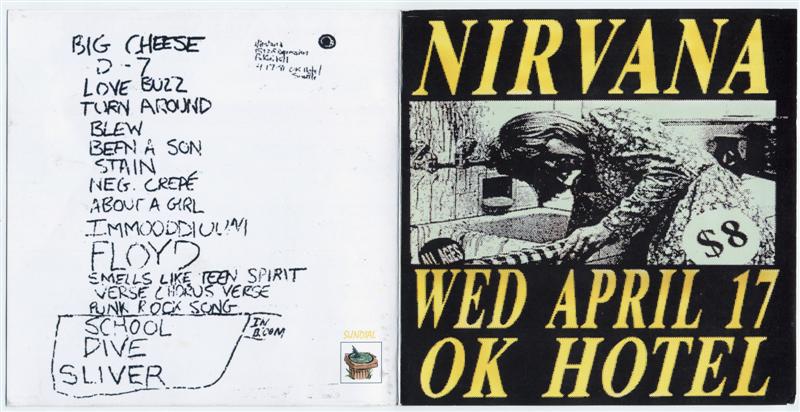 BIG CHEESE
D-7
LOVE BUZZ
TURN AROUND
BLEW
BEEN A SON
STAIN
NEG. CREPE
ABOUT A GIRL
IMMOODDIUUM
FLOYD
SMELLS LIKE TEEN SPIRIT
VERSE CHORUS VERSE
PUNK ROCK SONG
SCHOOL
DIVE
SLIVER
IN
Nirvana
4.17.91 OK Hotel
Seattle
SUNDIAL
NIRVANA
ALL AGES
$8
WED APRIL 17
OK HOTEL